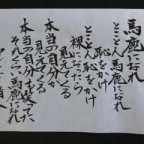 馬鹿になれ
とことん馬鹿になれ
恥をかけ
とことん恥をかけ
裸になったら
見えてくる
本当の自分が
見えてくる
本当の自分も笑ってた
それくらい馬鹿になれ